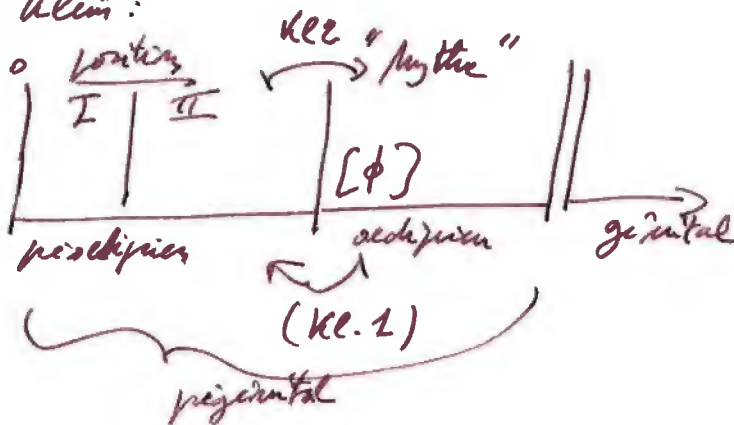 Klein :
0 position Kl 2 "Mythe"
I II
[ϕ]
préœdipien œdipien génital
(Kl. 1)
prégénital